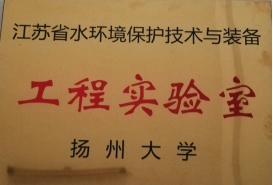 江苏省水环境保护技术与装备
工程实验室
扬州大学